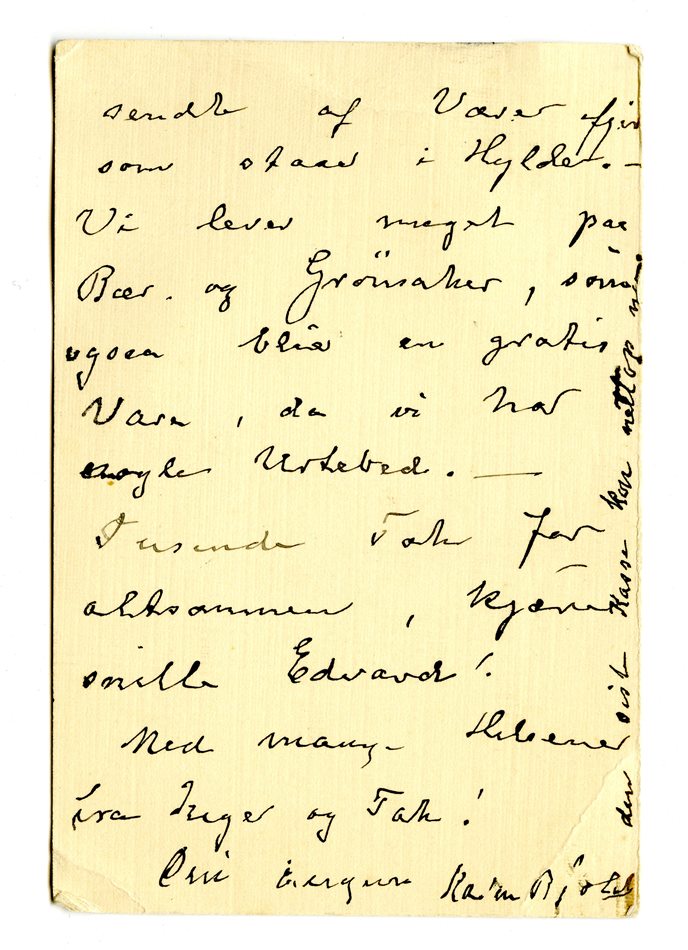 sendte af Varer
som staar i Hylder. –
Vi lever meget paa
Bær. og Grönsaker, som
ogsaa blir en gratis
Vare, da vi har
nogle Urtebed. —
Tusinde Tak for
altsammen, kjære
snille Edvard!
Med mange Hilsener
fra Inger og Tak!
Din Karen
den sist Kasse kom nettop